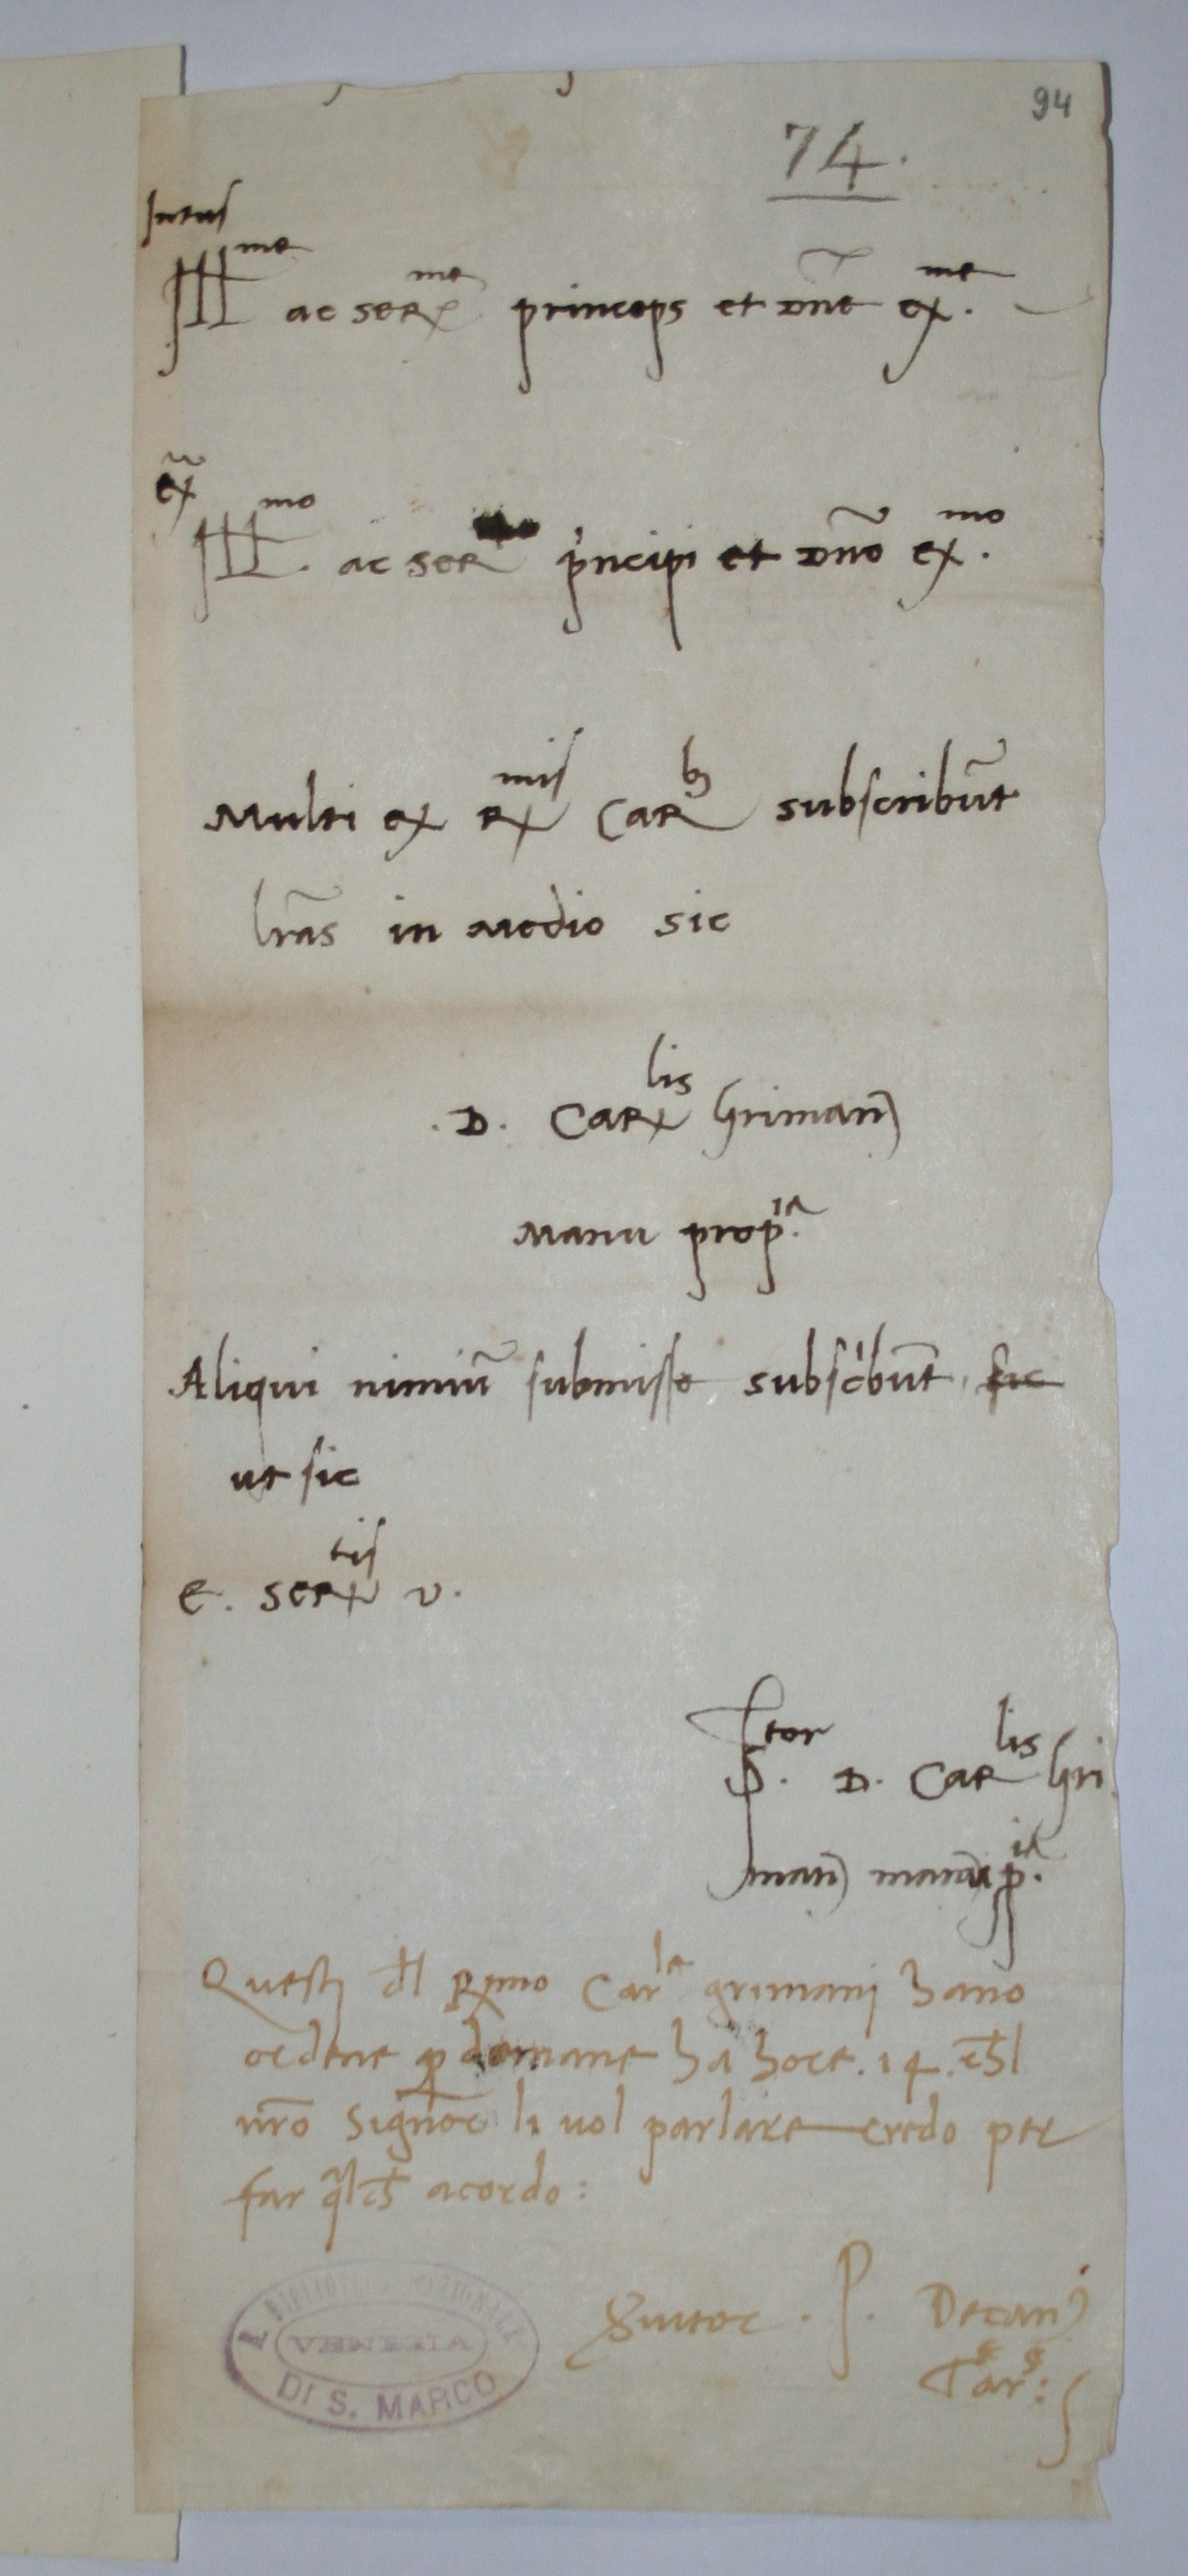 94
74.
Intus
Ill^me ac ser^me princeps et dne ex^me.
ex̃
Ill^mo. ac ser pncipi et dño ex^mo.
Multi ex R^mis Car^b subscribũt
lrãs in medio sic
.D. Car^lis Griman)
Manu prop^ia.
Aliqui nimiũ submisse subscbũt sic
ut sic
E. Ser^tis v.
S^tor. D. Car^lis Gri
man) manu p^ia.
Questi dl Rmo Car^le grimanj hano
ordene p domane ha hore .14. ch̃l
nr̃o Signor li vol parlare credo per
far ql ch̃ acordo:
Suitor . P. Decan)
Car:
BIBLIOTECA NAZIONALE
VENEZIA
DI S. MARCO